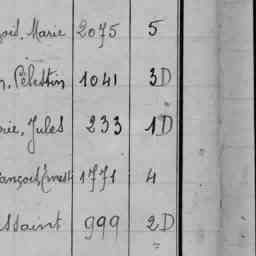 çois, Marie 2075 5
n, Célestin 1041 3D
rie, Jules 233 1D
ançois, Ernest 1771 4
ssaint 999 2D